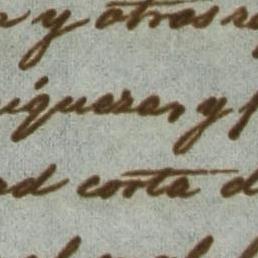 y otros
iqueza, y
ad corta d